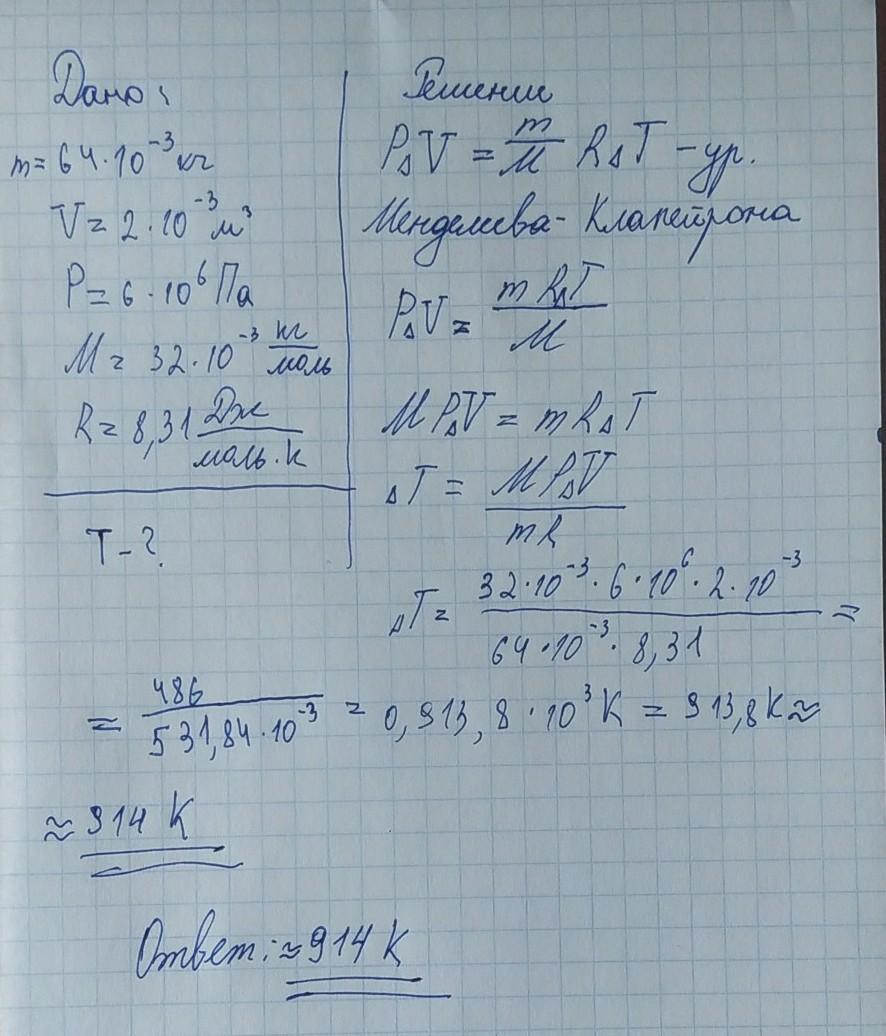 Дано:
m = 64·10⁻³ кг
V = 2·10⁻³ м³
P = 6·10⁶ Па
M = 32·10⁻³ кг/моль
R = 8,31 Дж/моль·к
T - ?
Решение
P△V = m/M R△T - ур.
Менделеева - Клапейрона
P△V = m R△T / M
M P△V = m R△T
△T = M P△V / m R
△T = 32·10⁻³·6·10⁶·2·10⁻³ / 64·10⁻³·8,31 =
= 486 / 531,84·10⁻³ = 0,913,8·10³ K = 913,8 K ≈
≈ 914 K
Ответ: ≈ 914 K